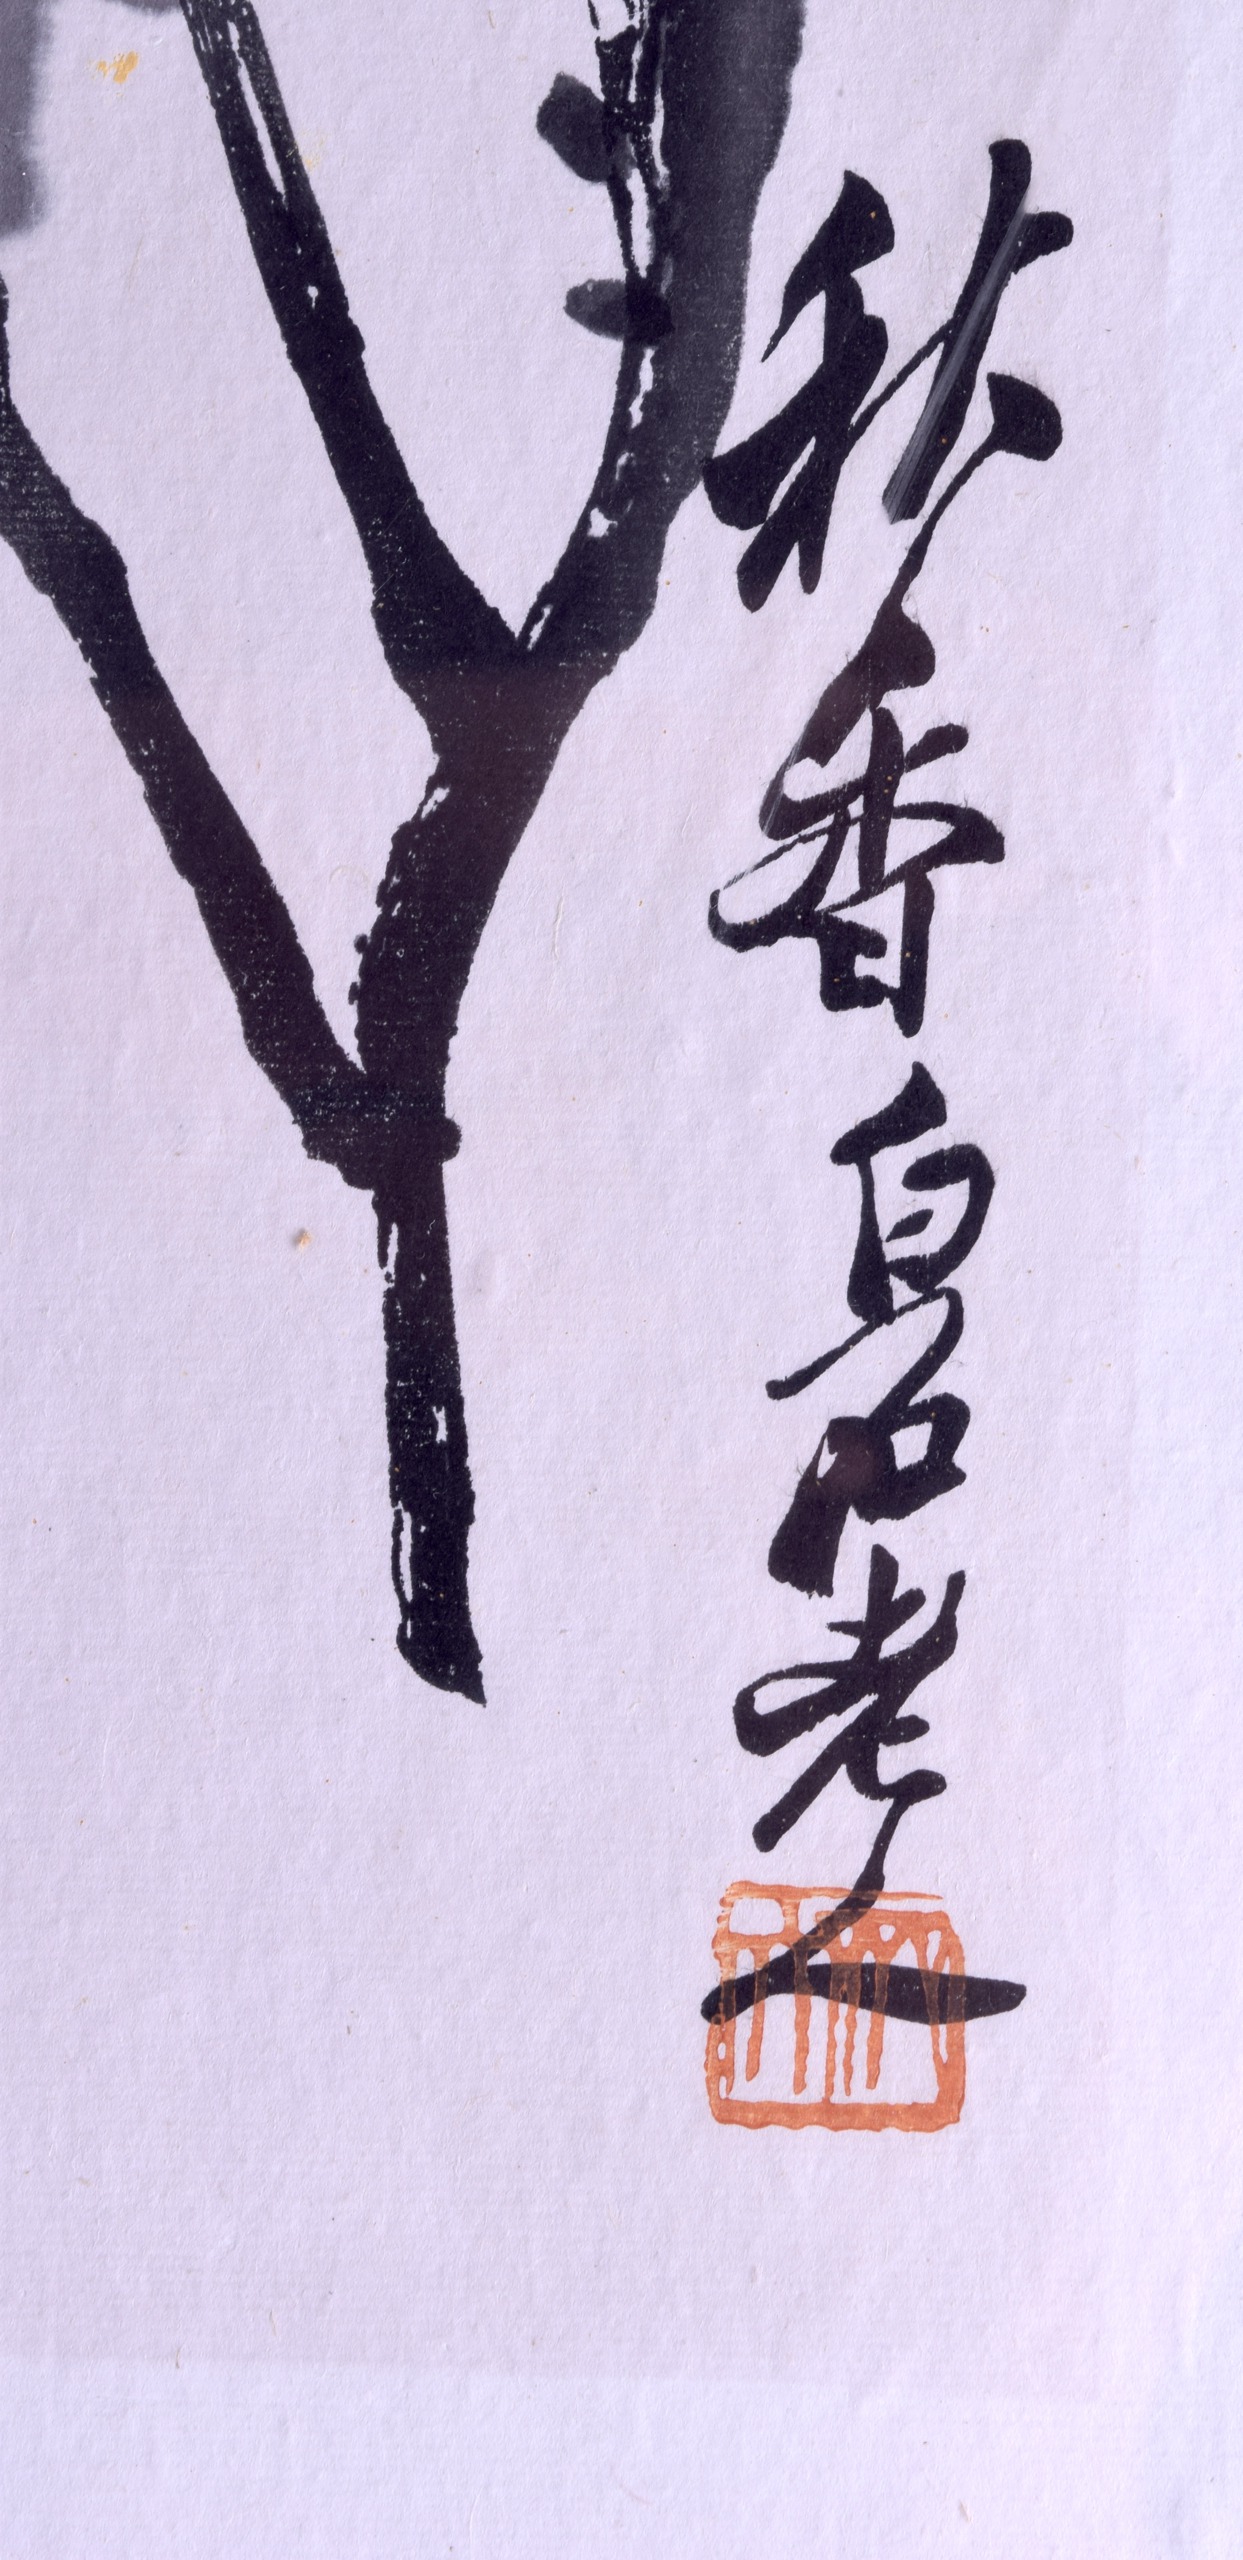 秋香白石老人